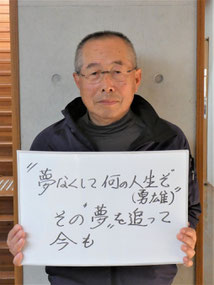 〃夢なくして何の人生ぞ〃
(勇雄)
その〝夢〟を追って
今も